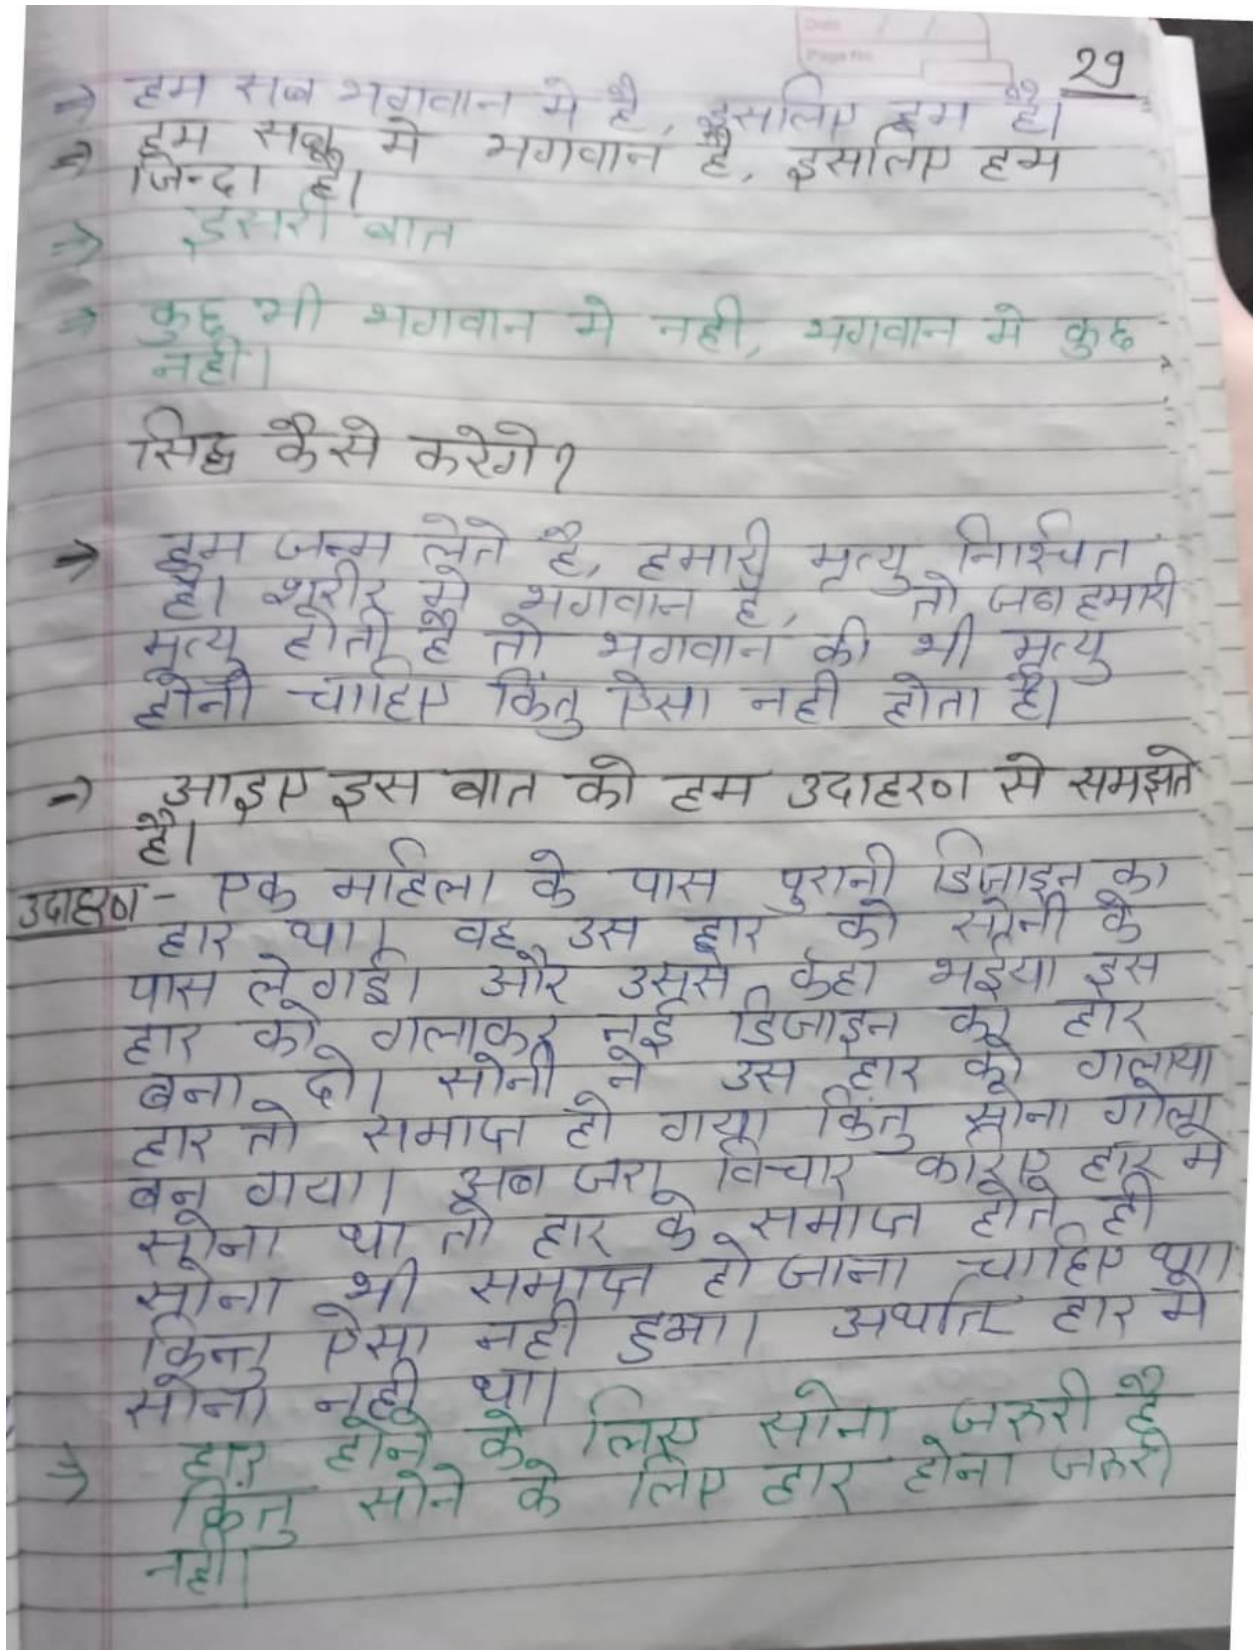 29
→ हम सब भगवान मे है, इसलिए हम है।
→ हम सब मे भगवान है, इसलिए हम
जिन्दा है।
→ दुसरी बात
→ कुछ भी भगवान मे नही, भगवान मे कुछ
नही।
सिद्ध कैसे करेगे?
→ हम जन्म लेते है, हमारी मृत्यु निश्चित
है। शरीर मे भगवान है, तो जब हमारी
मृत्यु होती है तो भगवान की भी मृत्यु
होनी चाहिए किंतु ऐसा नही होता है।
→ आइए इस बात को हम उदाहरण से समझते
है।
उदाहरण - एक महिला के पास पुरानी डिजाइन का
हार था। वह उस हार को सोनी के
पास ले गई। और उससे कहा भईया इस
हार को गलाकर नई डिजाइन का हार
बना दो। सोनी ने उस हार को गलाया
हार तो समाप्त हो गया किंतु सोना गोला
बन गया। अब जरा विचार करिए हार मे
सोना था तो हार के समाप्त होते ही
सोना भी समाप्त हो जाना चाहिए था।
किन्तु ऐसा नही हुआ। अर्थात हार मे
सोना नही था।
→ हार होने के लिए सोना जरुरी है
किंतु सोने के लिए हार होना जरुरी
नही।